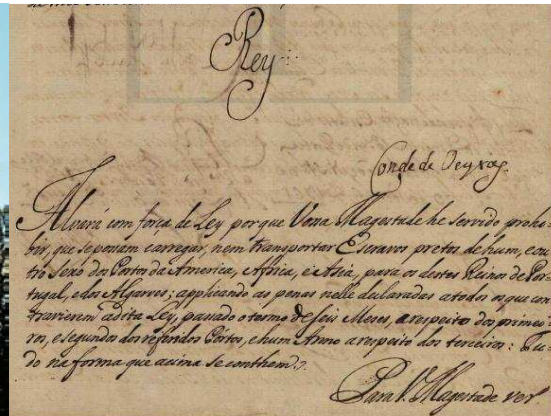 Rey
Conde de Oeyras.
Alvará com força de Ley porque Vossa Magestade he servido prohi-
bir, que se possam carregar, nem transportar Escravos pretos de hum, e ou
tro Sexo dos Portos da America, Affrica, e Asia, para os destes Reinos de Por-
tugal, e dos Algarves; applicando as penas nelle declaradas a todos os que con
travierem a dita Ley, passado o termo de seis Meses, a respeito dos primei-
ros, e segundos dos referidos Portos, e hum Anno a respeito dos terceiros: Tu-
do na forma que acima se conthem.
Para V. Magestade ver.